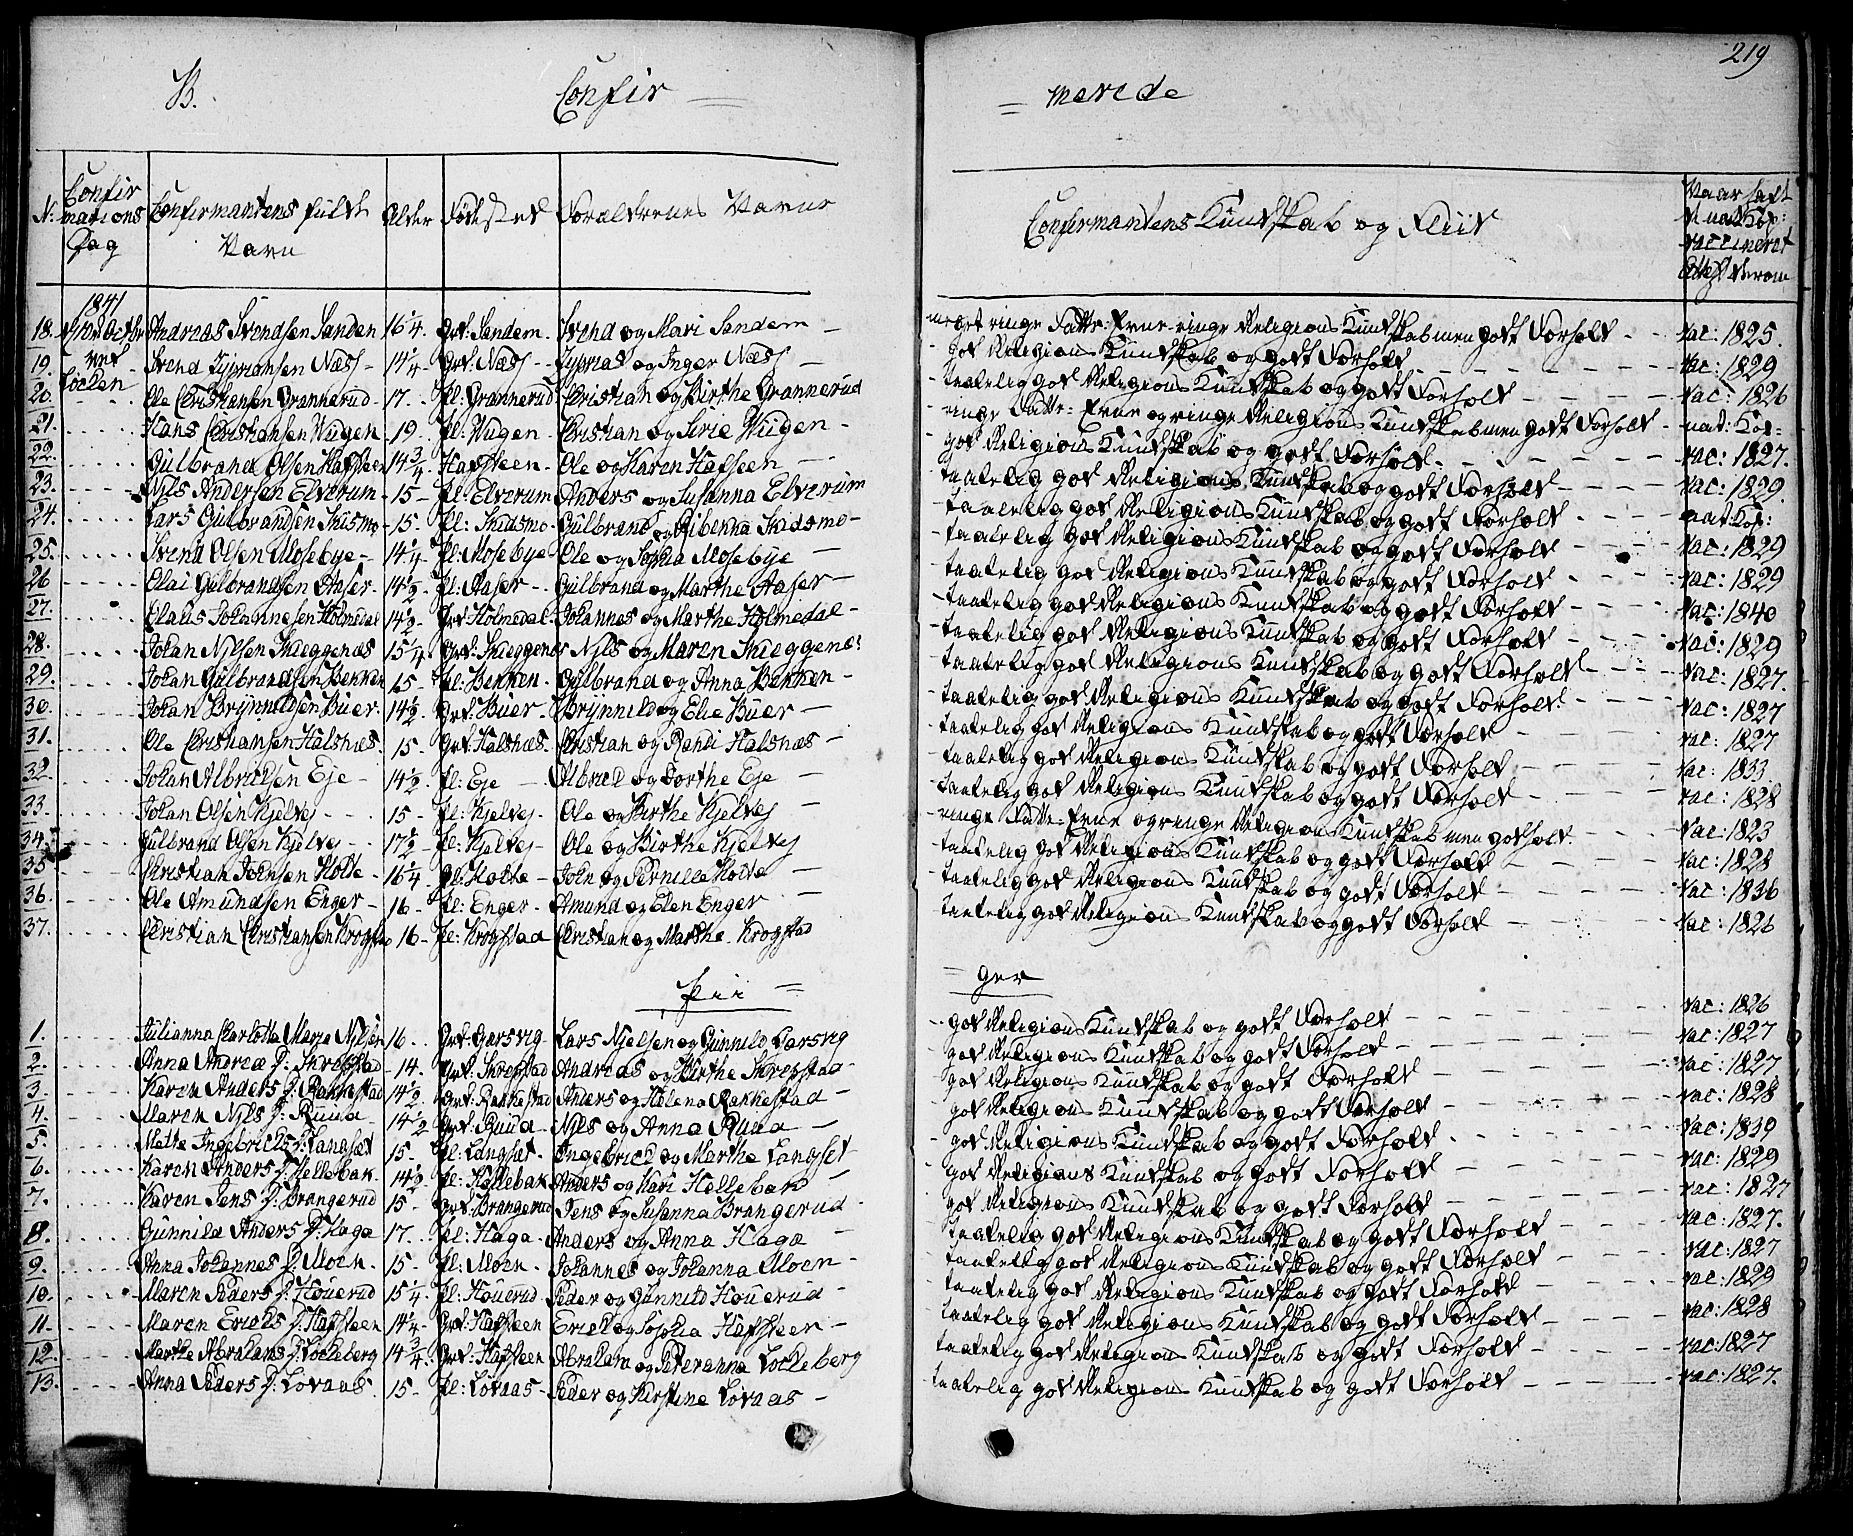 219
B. Confir = = merede
N: Confirmations Dag Confirmantens fulde Navn Alder Fødested Forældrenes Navne Confirmantens Kundskab og Fliid Naar haft nat: Kop: vaccineret
1841
18. 10de Octbr Andreas Svendsen Sanden 16 1/4. Grd: Sandem Svend og Mari Sandem — meget ringe Fatte-Evne ringe Religions Kundskab men godt Forhold - vac: 1825.
19. ved Svend Næss - 14 1/4 Grd: Næss - og Inger Næss - god Religions Kundskab og godt Forhold vac: 1829
20. Ole Christiansen Grannerud - 17. Pl: Grannerud Christian og Birthe Grannerud - taalelig god Religions Kundskab og godt Forhold vac: 1826
21. Hans Christiansen Wiigen 19. Pl: Wiigen Christian og Sirie Wiigen - ringe Fatte-Evne og ringe Religions Kundskab men godt Forhold - nat: Kop-
22. Gulbrand Olsen Hafsteen 14 3/4 Hafsteen Ole og Karen Hafsteen - god Religions Kundskab og godt Forhold vac: 1827.
23. Nils Andersen Elverum 15 Pl: Elverum Anders og Susanna Elverum - taalelig god Religions Kundskab og godt Forhold vac: 1829.
24. Lars Gulbrandsen Skidsmo 15. Pl: Skidsmo Gulbrand og Skidsmo - taalelig god Religions Kundskab og godt Forhold nat: Kop:
25. Svend Olsen Mosebye 14 1/4 Pl: Mosebye Ole og Sophia Mosebye - taalelig god Religions Kundskab og godt Forhold vac: 1829
26 Gulbrandsen Aaser 14 1/2 Pl: Aaser Gulbrand og Marthe Aaser - taalelig god Religions Kundskab og godt Forhold vac: 1829
27. Claus Johannesen Holmedal 14 1/2 Grd: Holmedal Johannes og Marthe Holmedal - taalelig god Religions Kundskab og godt Forhold vac: 1840
28. Johan Nilsen Skieggenæs 15 1/4 Grd: Skieggenæs Nils og Maren Skieggenæs - taalelig god Religions Kundskab og godt Forhold vac: 1829
29. Johan Gulbrandsen Bekken 15 Pl: Bekken Gulbrand og Anna Bekken - taalelig god Religions Kundskab og godt Forhold vac: 1827.
30. Johan Brynnildsen Buer 14 1/2 Grd: Buer Brynnild og Elie Buer - taalelig god Religions Kundskab og godt Forhold vac: 1827
31. Ole Christiansen Halsnæs 15 Grd: Halsnæs Christian og Randi Halsnæs - taalelig god Religions Kundskab og godt Forhold vac: 1827
32 Johan Albrictsen Eje 14 1/2 Pl: Eje Albrict og Dorthe Eje - taalelig god Religions Kundskab og godt Forhold vac: 1833.
33. Johan Olsen Kjelvej 15 Pl: Kjelvej Ole og Birthe Kjelvej - taalelig god Religions Kundskab og godt Forhold vac: 1828
34. Gulbrand Olsen Kjelvej 17 1/2 Pl: Kjelvej Ole og Birthe Kjelvej - ringe Fatte-Evne og ringe Religions Kundskab men godt Forhold vac: 1823
35 Christian Johnsen Holte 16 1/4 Pl: Holte John og Pernille Holte - taalelig god Religions Kundskab og godt Forhold vac: 1828
36. Ole Amundsen Enger 16 Pl: Enger Amund og Elen Enger - taalelig god Religions Kundskab og godt Forhold vac: 1836
37. Christian Christiansen Krogstad 16 Pl: Krogstad Christian og Marthe Krogstad - taalelig god Religions Kundskab og godt Forhold vac: 1826
Pii = = ger
1. Julianna Charlotha Marja Nilsen 16 Grd: Garsvig Lars Nielsen og Gunnild Garsvig - god Religions Kundskab og godt Forhold vac: 1826
2. Anna Andrea D: Skrepstad 14. Grd: Skrepstad Andreas og Birthe Skrepstad - god Religions Kundskab og godt Forhold vac: 1827
3. Karen Anders D: Rakkestad 14 1/2 Grd: Rakkestad Anders og Helena Rakkestad - god Religions Kundskab og godt Forhold vac: 1827
4. Maren Nils D: Ruud 14 1/2 Grd: Ruud Nils og Anna Ruud - god Religions Kundskab og godt Forhold vac: 1828
5. Mathe Ingebricts D: Langset 15. Pl: Langset Ingebrict og Marthe Langset - god Religions Kundskab og godt Forhold vac: 1839
6. Karen Anders D: Hellebak 14 1/2 Pl: Hellebak Anders og Kari Hellebak - god Religions Kundskab og godt Forhold vac: 1829
7. Karen Jens D: Brangerud 15 Grd: Brangerud Jens og Susanna Brangerud - god Religions Kundskab og godt Forhold vac: 1827
8. Gunnild Anders D: Haga 17. Pl: Haga Anders og Anna Haga - taalelig god Religions Kundskab og godt Forhold vac: 1827.
9. Anna Johannes D: Moen 15 Pl: Moen Johannes og Johanna Moen - taalelig god Religions Kundskab og godt Forhold vac: 1827
10. Maren Peders D: Houerud 15 1/4 Pl: Houerud Peder og Gunnild Houerud - taalelig god Religions Kundskab og godt Forhold vac: 1829
11. Maren Ericks D: Hafsteen 14 1/4 Grd: Hafsteen Erick og Sophia Hafsteen - taalelig god Religions Kundskab og godt Forhold vac: 1828
12. Marthe Abrahams D: Lockeberg 14 3/4 Grd: Hafsteen Abraham og Peteranna Lockeberg - taalelig god Religions Kundskab og godt Forhold vac: 1827
13. Anna Peders D: Lovaas 15 Pl: Lovaas Peder og Kirstine Lovaas - taalelig god Religions Kundskab og godt Forhold vac: 1827.